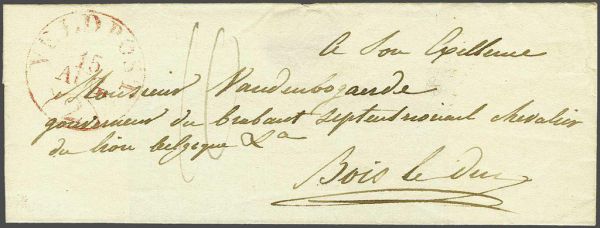 VELDPOST
15
A Son Exellence
Monsieur Vandenbogaerde
gouverneur du brabant septentrional chevalier
du lion belgique &a
Bois le duc